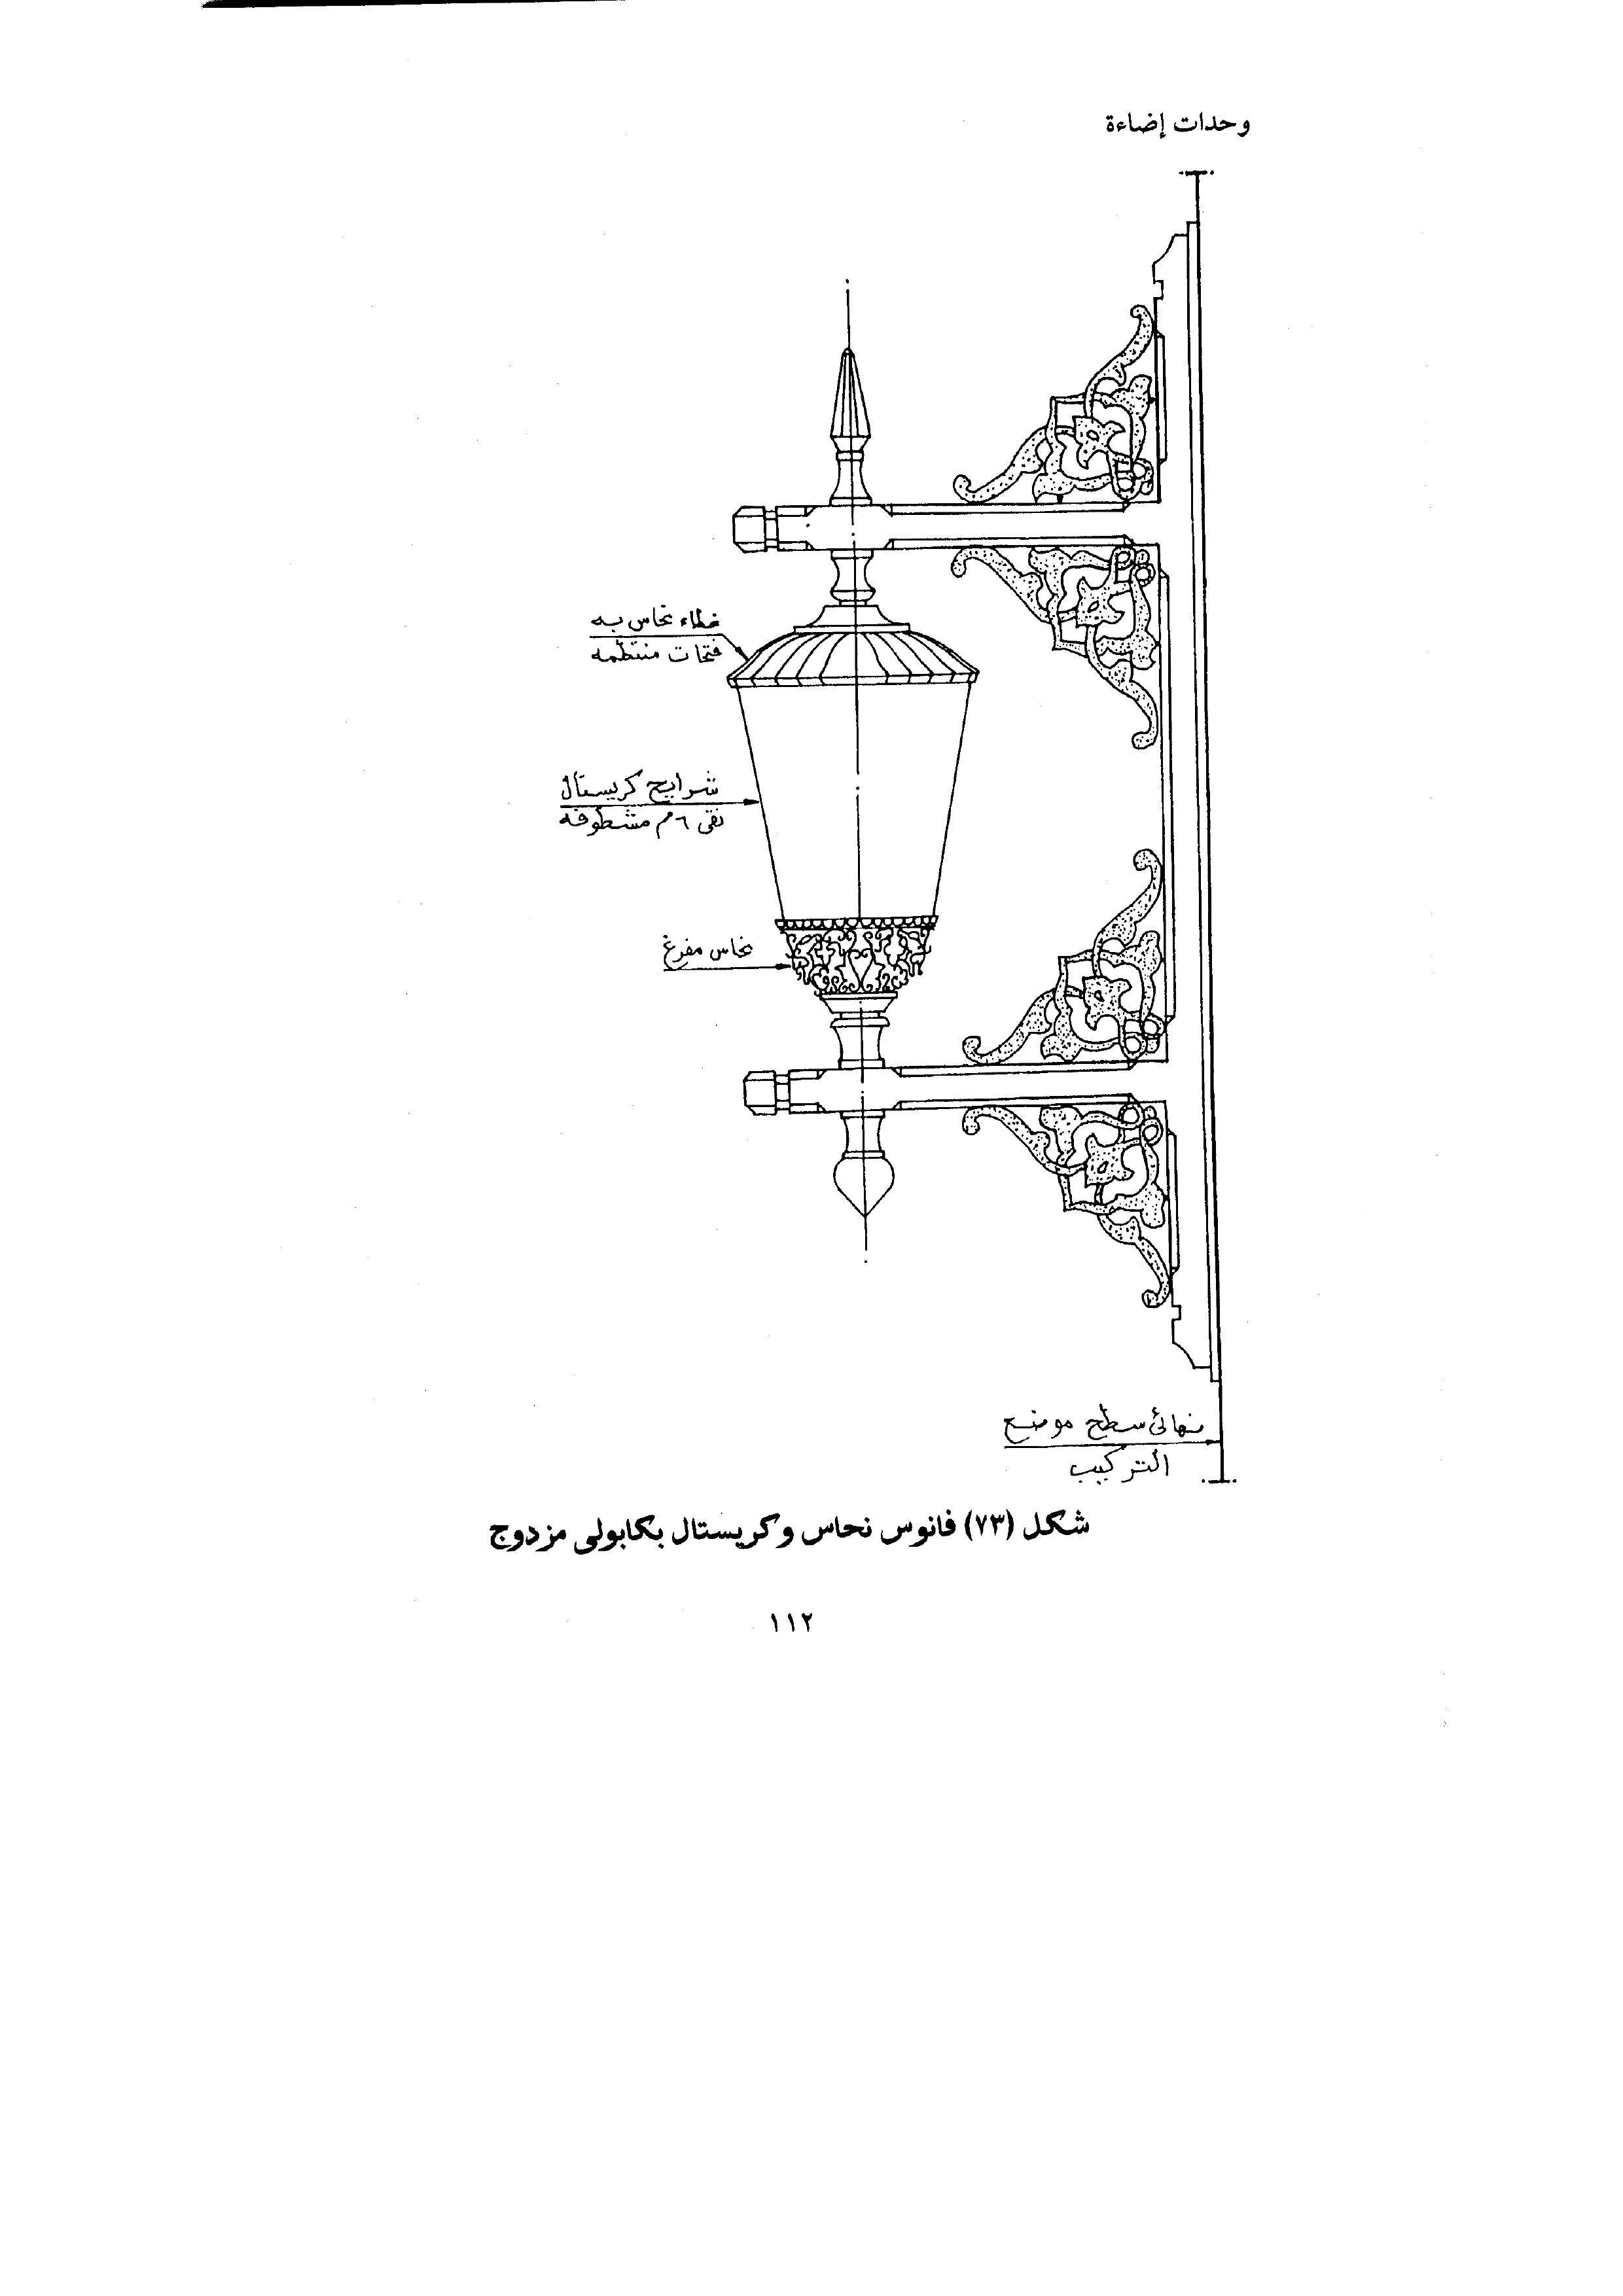 وحدات إضاءة
غطاء نحاس به
فتحات منتظمه
شرايح كريستال
نقى ٦م مشطوفه
نحاس مفرغ
نهائى سطح موضع
التركيب
شكل (٧٣) فانوس نحاس وكريستال بكابولى مزدوج
١١٢